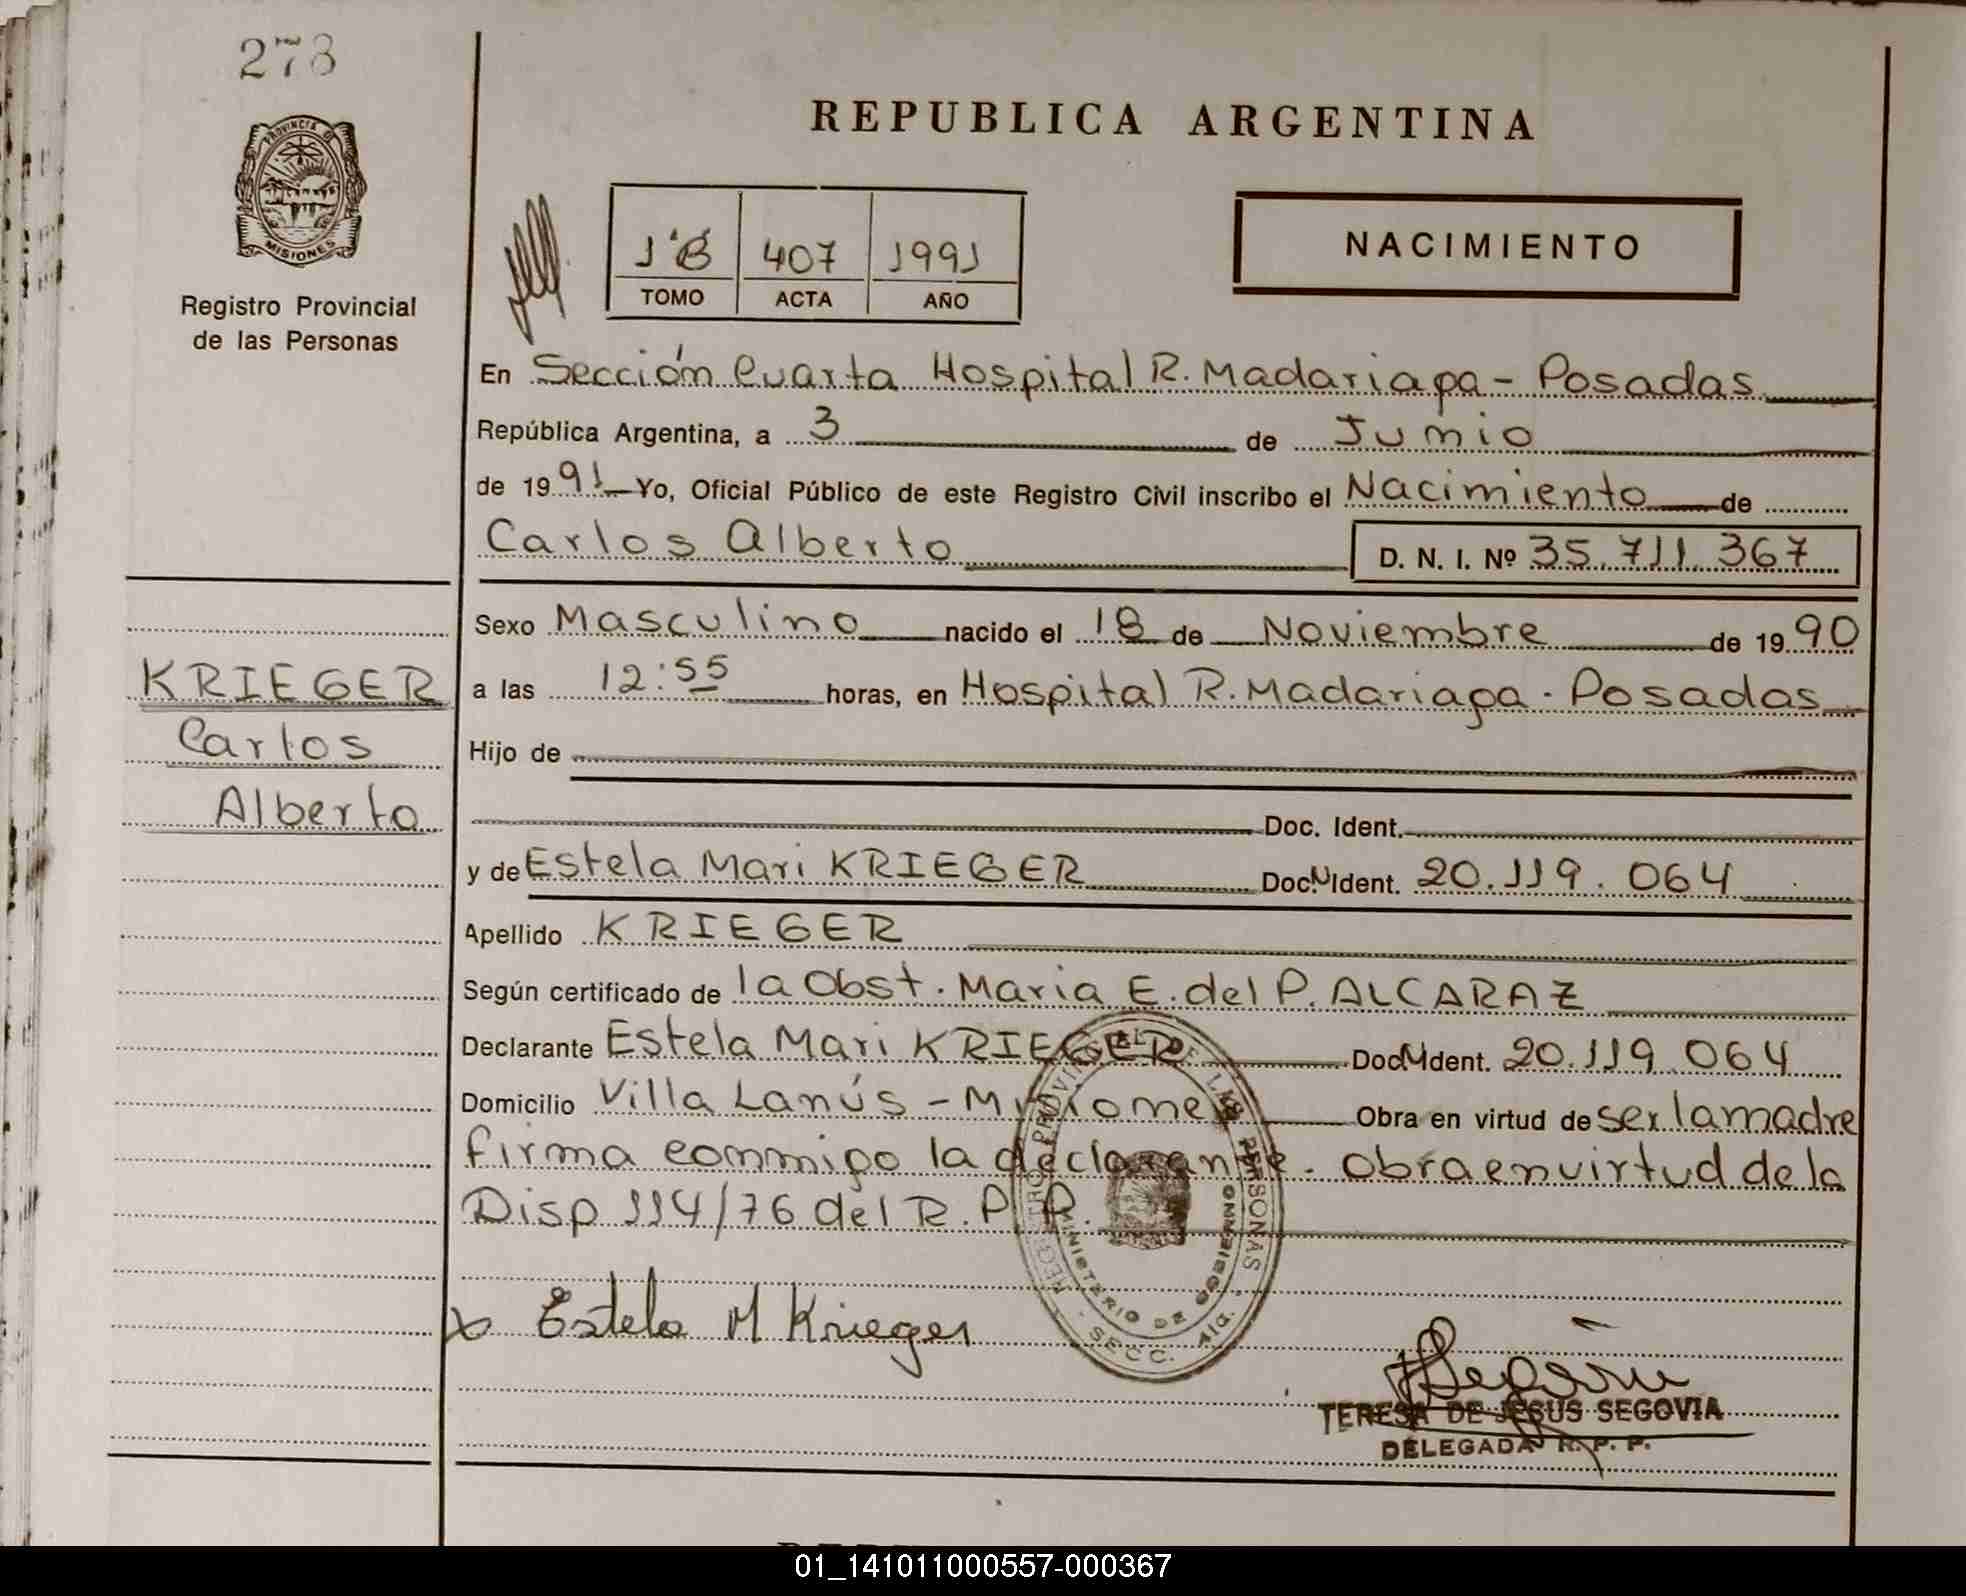 273
PROVINCIA D
MISIONES
Registro Provincial
de las Personas
REPUBLICA ARGENTINA
1ºB 407 1991
TOMO ACTA AÑO
NACIMIENTO
En Sección Cuarta Hospital R. Madariaga - Posadas
República Argentina, a 3 de Junio
de 1991 Yo, Oficial Público de este Registro Civil inscribo el Nacimiento de
Carlos Alberto D. N. I. Nº 35.711.367
Sexo Masculino nacido el 18 de Noviembre de 1990
a las 12:55 horas, en Hospital R. Madariaga - Posadas
Hijo de
Doc. Ident.
y de Estela Mari KRIEGER Doc.N Ident. 20.119.064
Apellido KRIEGER
Según certificado de la Obst. Maria E. del P. ALCARAZ
Declarante Estela Mari KRIEGER Doc.N Ident. 20.119.064
Domicilio Villa Lanús - Misiones Obra en virtud de ser la madre
firma conmigo la declarante. Obra en virtud de la
Disp 114/76 del R. P. P.
KRIEGER
Carlos
Alberto
x Estela M Krieger
REGISTRO PROVINCIAL DE LAS PERSONAS
MINISTERIO DE GOBIERNO
SECC. 4ta.
TERESA DE JESUS SEGOVIA
DELEGADA R. P. P.
01_141011000557-000367